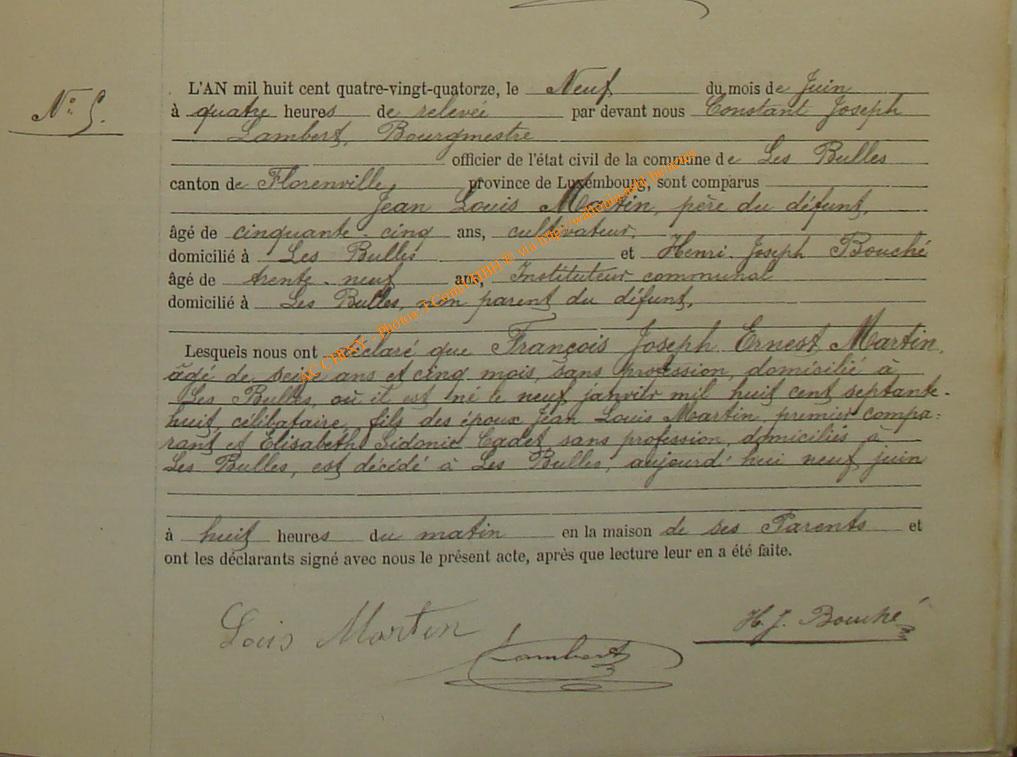 L'AN mil huit cent quatre-vingt-quatorze, le Neuf du mois de Juin
N° 5.
à quatre heures de relevée par devant nous Constant Joseph
Lambert, Bourgmestre
officier de l'état civil de la commune de Les Bulles
canton de Florenville, province de Luxembourg, sont comparus
Jean Louis Martin, père du défunt,
âgé de cinquante-cinq ans, cultivateur,
domicilié à Les Bulles et Henri Joseph Bouché
âgé de trente-neuf ans, Instituteur communal
domicilié à Les Bulles, non parent du défunt,
Lesquels nous ont déclaré que François Joseph Ernest Martin,
âgé de seize ans et cinq mois, sans profession, domicilié à
Les Bulles, où il est né le neuf janvier mil huit cent septante-
huit, célibataire, fils des époux Jean Louis Martin premier compa=
rant et Elisabeth Sidonie Cadet, sans profession, domiciliés à
Les Bulles, est décédé à Les Bulles, aujourd'hui neuf juin
à huit heures du matin en la maison de ses Parents et
ont les déclarants signé avec nous le présent acte, après que lecture leur en a été faite.
Lois Martin
H. J. Bouché
Lambert